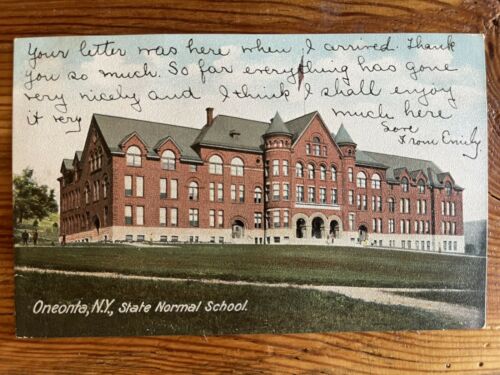 Your letter was here when I arrived. Thank
you so much. So far everything has gone
very nicely and I think I shall enjoy
it very much here
Love
from Emily
Oneonta, N.Y., State Normal School.